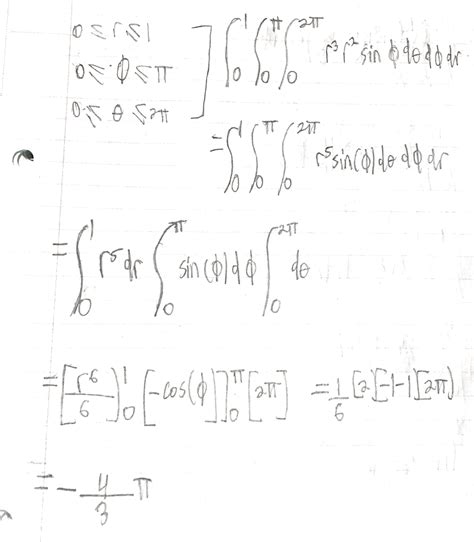 0 ≤ r ≤ 1
0 ≤ ϕ ≤ π
0 ≤ θ ≤ 2π
] ∫₀¹ ∫₀^π ∫₀^{2π} r³ r² sin ϕ dθ dϕ dr
= ∫₀¹ ∫₀^π ∫₀^{2π} r⁵ sin(ϕ) dθ dϕ dr
= ∫₀¹ r⁵ dr ∫₀^π sin(ϕ) dϕ ∫₀^{2π} dθ
= [r⁶/6]₀¹ [-cos(ϕ)]₀^π [2π] = 1/6 [2][-1-1][2π]
= - 4/3 π